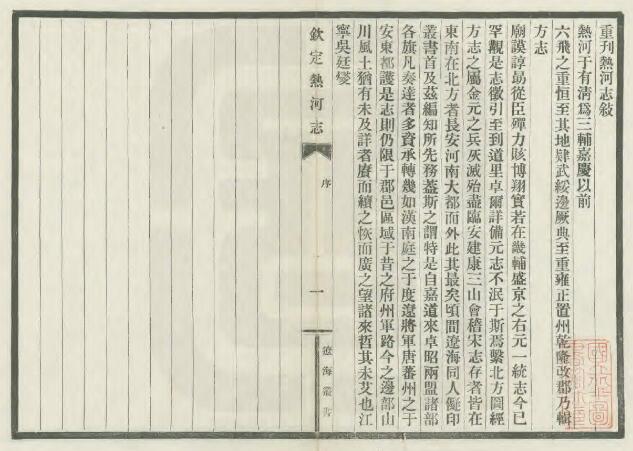 重刊熱河志敍
熱河于有清爲三輔嘉慶以前
六飛之重恒至其地肄武綏邊厥典至重雍正置州乾隆改郡乃輯
方志
廟謨諄勗從臣殫力賅博翔實若在畿輔盛京之右元一統志今已
罕觀是志徵引至到道里卓爾詳備元志不泯于斯焉繫北方圖經
方志之屬金元之兵灰滅殆盡臨安建康三山會稽宋志存者皆在
東南在北方者長安河南大都而外此其最矣頃間遼海同人僦印
叢書首及茲編知所先務蓋斯之謂特是自嘉道來卓昭兩盟諸部
各旗凡奏達者多資承轉幾如漢南庭之于度遼將軍唐蕃州之于
安東都護是志則仍限于郡邑區域于昔之府州軍路今之邊部山
川風土猶有未及詳者賡而續之恢而廣之望諸來哲其未艾也江
寧吳廷燮
欽定熱河志
序
一
遼海叢書